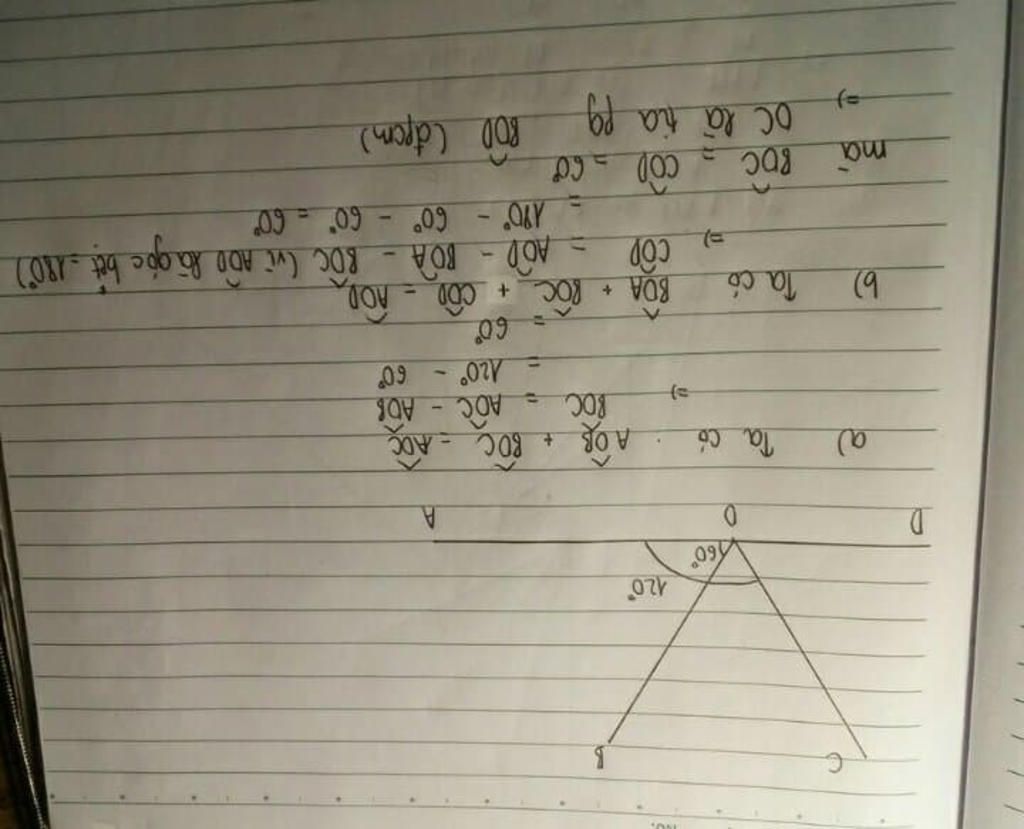 No.
C B
120°
60°
D O A
a) Ta có : AÔB + BÔC = AÔC
=) BÔC = AÔC - AÔB
= 120° - 60°
= 60°
b) Ta có BÔA + BÔC + CÔD = AÔD
=) CÔD = AÔD - BÔA - BÔC (vì AÔD là góc bẹt = 180°)
= 180° - 60° - 60° = 60°
mà BÔC = CÔD = 60°
=) OC là tia pg BÔD (đpcm)